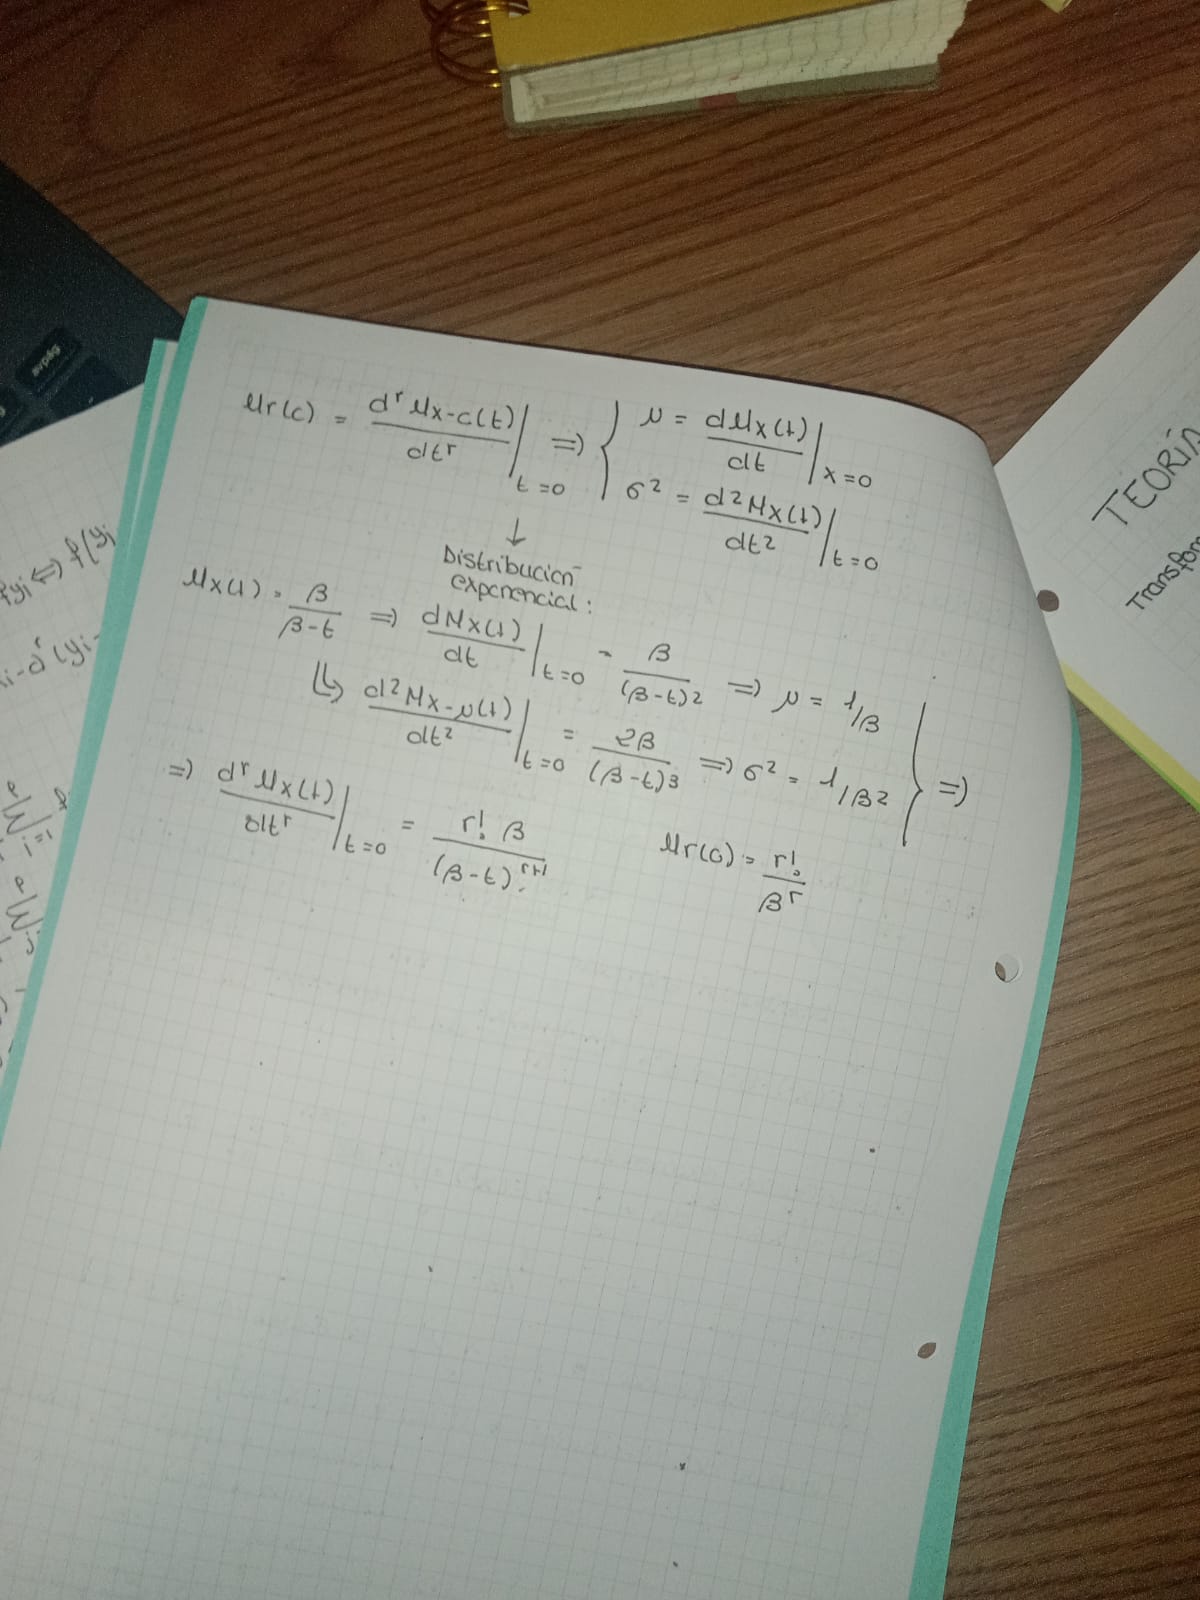 μr(c) = d^r Mx-c(t) / dt^r |t=0 => { μ = dMx(t) / dt |x=0
σ² = d²Mx(t) / dt² |t=0
↓
Distribución
exponencial:
Mx(t) = β / β-t => dMx(t) / dt |t=0 = β / (β-t)² => μ = 1/β
↳ d²Mx-μ(t) / dt² |t=0 = 2β / (β-t)3 => σ² = 1/β² } =>
=> d^r Mx(t) / dt^r |t=0 = r! β / (β-t)^r+1 μr(0) = r! / β^r
TEORÍA
Transfor
avpág